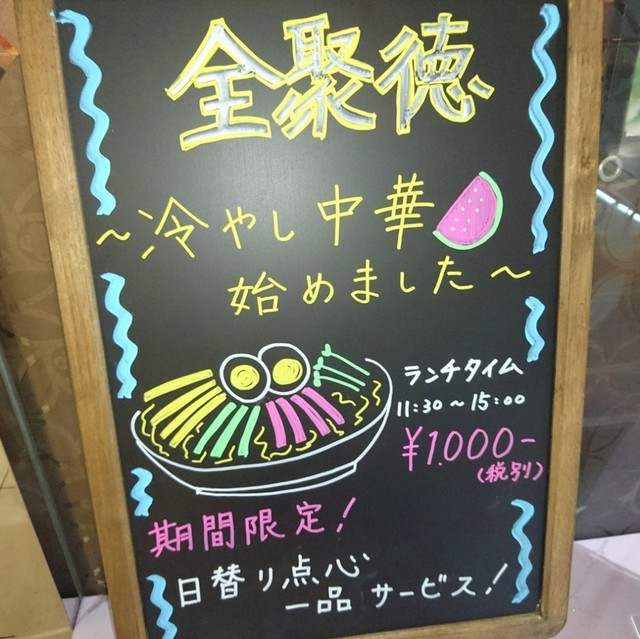 全聚徳
~冷やし中華
始めました~
ランチタイム
11:30~15:00
¥1.000-
(税別)
期間限定!
日替り点心
一品サービス!